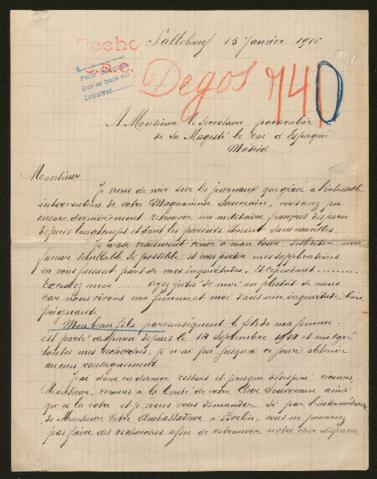 Hecho
Sallebœuf 15 Janvier 1916
Degos 740
que se hace sin
devolver
A Monsieur le Secrétaire particulier
de Sa Majesté le Roi d'Espagne
Madrid.
Monsieur
Je viens de voir sur les journaux que grâce à l'
intervention de votre Magnanime Souverain, vous avez pu
encore dernièrement retrouver un militaire français disparu
depuis longtemps et dont les parents étaient sans nouvelles.
Je viens vraiment à mon tour, solliciter une
faveur semblable si possible et vous porter mes supplications
en vous faisant part de mes inquiétudes. Et cependant.........
Excusez moi ...... ayez pitié de moi ou plutôt de nous
car nous vivons ma femme et moi dans une inquiétude bien
poignante.
Mon beau fils par conséquent le fils de ma femme
est porté disparu depuis le 14 Septembre 1914 et malgré
toutes mes recherches, je n'ai pu jusqu'à ce jour obtenir
aucun renseignement.
J'ai donc en dernier ressort et presque désespéré recours,
Monsieur, à la Bonté de votre Souverain ainsi
qu'à la votre et je viens vous demander si par l'intermédiaire
de Monsieur Votre Ambassadeur à Berlin, vous ne pourriez
pas faire des recherches, afin de retrouver notre cher disparu